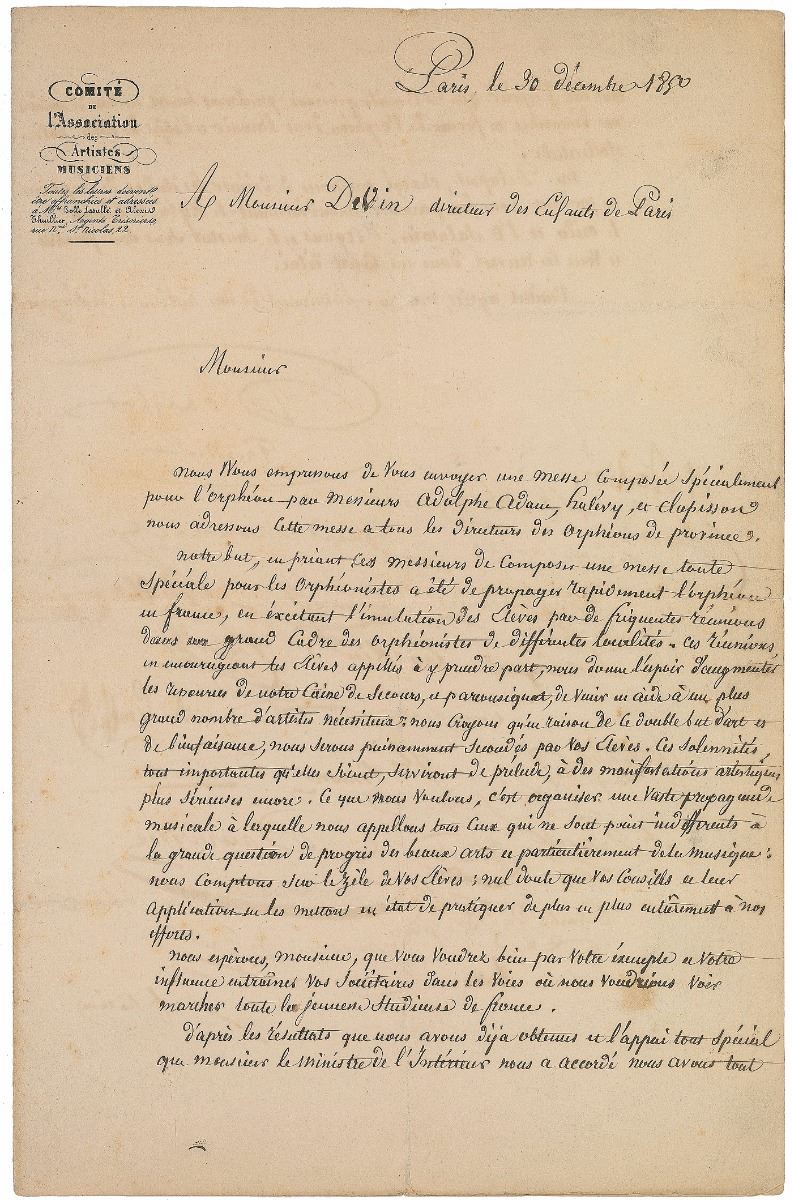 Paris, le 30 décembre 1850
COMITÉ
DE
l'Association
des
Artistes
MUSICIENS
Toutes les lettres devront
être affranchies et adressées
à M.rs Bolle Lasalle et
Thuillier, Agents Trésoriers,
rue N.ve St Nicolas, 22.
A Monsieur Devin directeur des Enfants de Paris
Monsieur
nous Nous empressons de Vous envoyer une messe Composée Spécialement
pour l'Orphéon par Messieurs Adolphe Adam, halévy, et clapisson
nous adressons Cette messe a tous les Directeurs des Orphéons de province.
notre but, en priant Ces Messieurs de Composer une messe toute
Spéciale pour les Orphéonistes a été de propager rapidement l'orphéon
en france, en éxcitant l'émulation des Elèves par de fréquentes réunions
dans un grand Cadre des orphéonistes de différentes localités. Ces réunions,
en encourageant les Elèves appellés à y prendre part, nous donne l'espoir d'augmenter
les ressources de notre Caisse de Secours, et par conséquent, de Venir en aide à un plus
grand nombre d'artistes nécessiteux; nous Croyons qu'en raison de Ce double but d'art et
de bienfaisance, nous serons puissamment secondés par Vos Elèves. Ces solennités,
tout importantes qu'elles soient, serviront de prélude, à des manifestations artistiques
plus Sérieuses encore. Ce que nous Voulons, c'est organiser une Vaste propagande
musicale à laquelle nous appellons tous Ceux qui ne Sont point indifférents à
la grande question de progrès des beaux arts et particulièrement de la Musique;
nous Comptons sur le Zèle de Vos Elèves; nul doute que Vos Conseils et leur
Application ne les mettent en état de pratiquer de plus en plus entièrement à nos
efforts.
nous espérons, monsieur, que Vous Voudrez bien par Votre éxemple et Votre
influence entraîner Vos Sociétaires dans les Voies où nous Voudrions Voir
marcher toute la jeunesse Studieuse de france.
d'après les résultats que nous avons déja obtenus et l'appui tout Spécial
que monsieur le Ministre de l'Intérieur nous a accordé nous avons tout